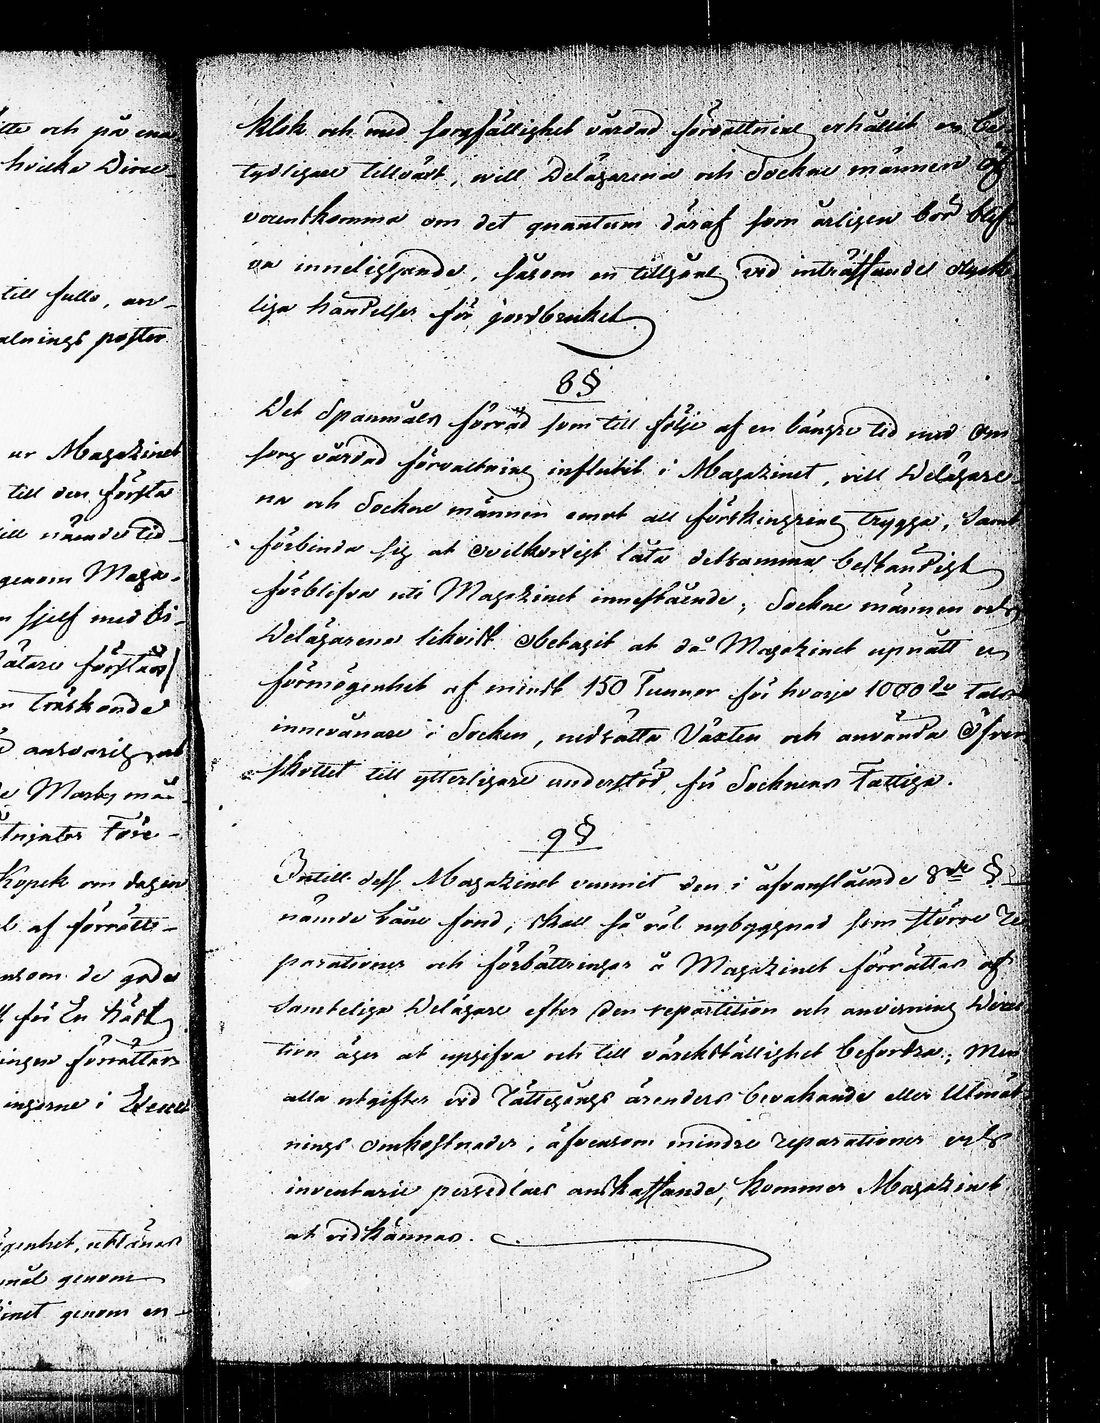 itte och på ena
hvilka Direc-
till fullo, an-
alnings poster
ur Magazinet
till den första
till nämde tid
genom Maga-
n sjelf med
låtare förstås
n tröskande
ansvarig, at
Kopek om dagen
af förrätts-
ensom de goda
för En häst
ingen förrättas
ingarne i
ägenhet, utlånas
mål genom
inet genom en-
klok och med sorgfällighet vårdad förvaltning erhållit en be-
tydligare tillväxt, will Delägarena och Sockne männen öf-
verenskomma om det quantum däraf som årligen bör blif-
va inneliggande, såsom en tillgång vid inträffande olyck-
liga händelser för jordbruket.
8 §
Det Spanmåls förråd som till följe af en längre tid med om-
sorg vårdad förvaltning influtit i Magazinet, vill Delägare-
na och Sockne männen emot all förskingring trygga, samt
förbinda sig at ovilkorligt låta detsamma beständigt
förblifva uti Magazinet innestående; Sockne männen och
Delägarena likväl obetagit at då Magazinet upnått en
förmögenhet af minst 150 Tunnor för hvarje 1000de Tals
innevånare i Socken, nedsätta Växten och använda öfver-
skottet till ytterligare understöd för Socknens Fattiga.
9 §
Intill dess Magazinet vunnit den i ofvanstående 8de §
nämde Låne fond, skall så väl nybyggnad som större re-
parationer och förbättringar å Magazinet förrättas af
samteliga Delägare efter den repartition och anvisning Direc-
tion äger at upgifva och till värckställighet befordra; Men
alla utgifter vid Rättegångs ärenders bevakande eller Utmät-
nings omkostnader, äfvensom mindre reparationer och
inventarie persedlars anskaffande, kommer Magazinet
at vidkännas.